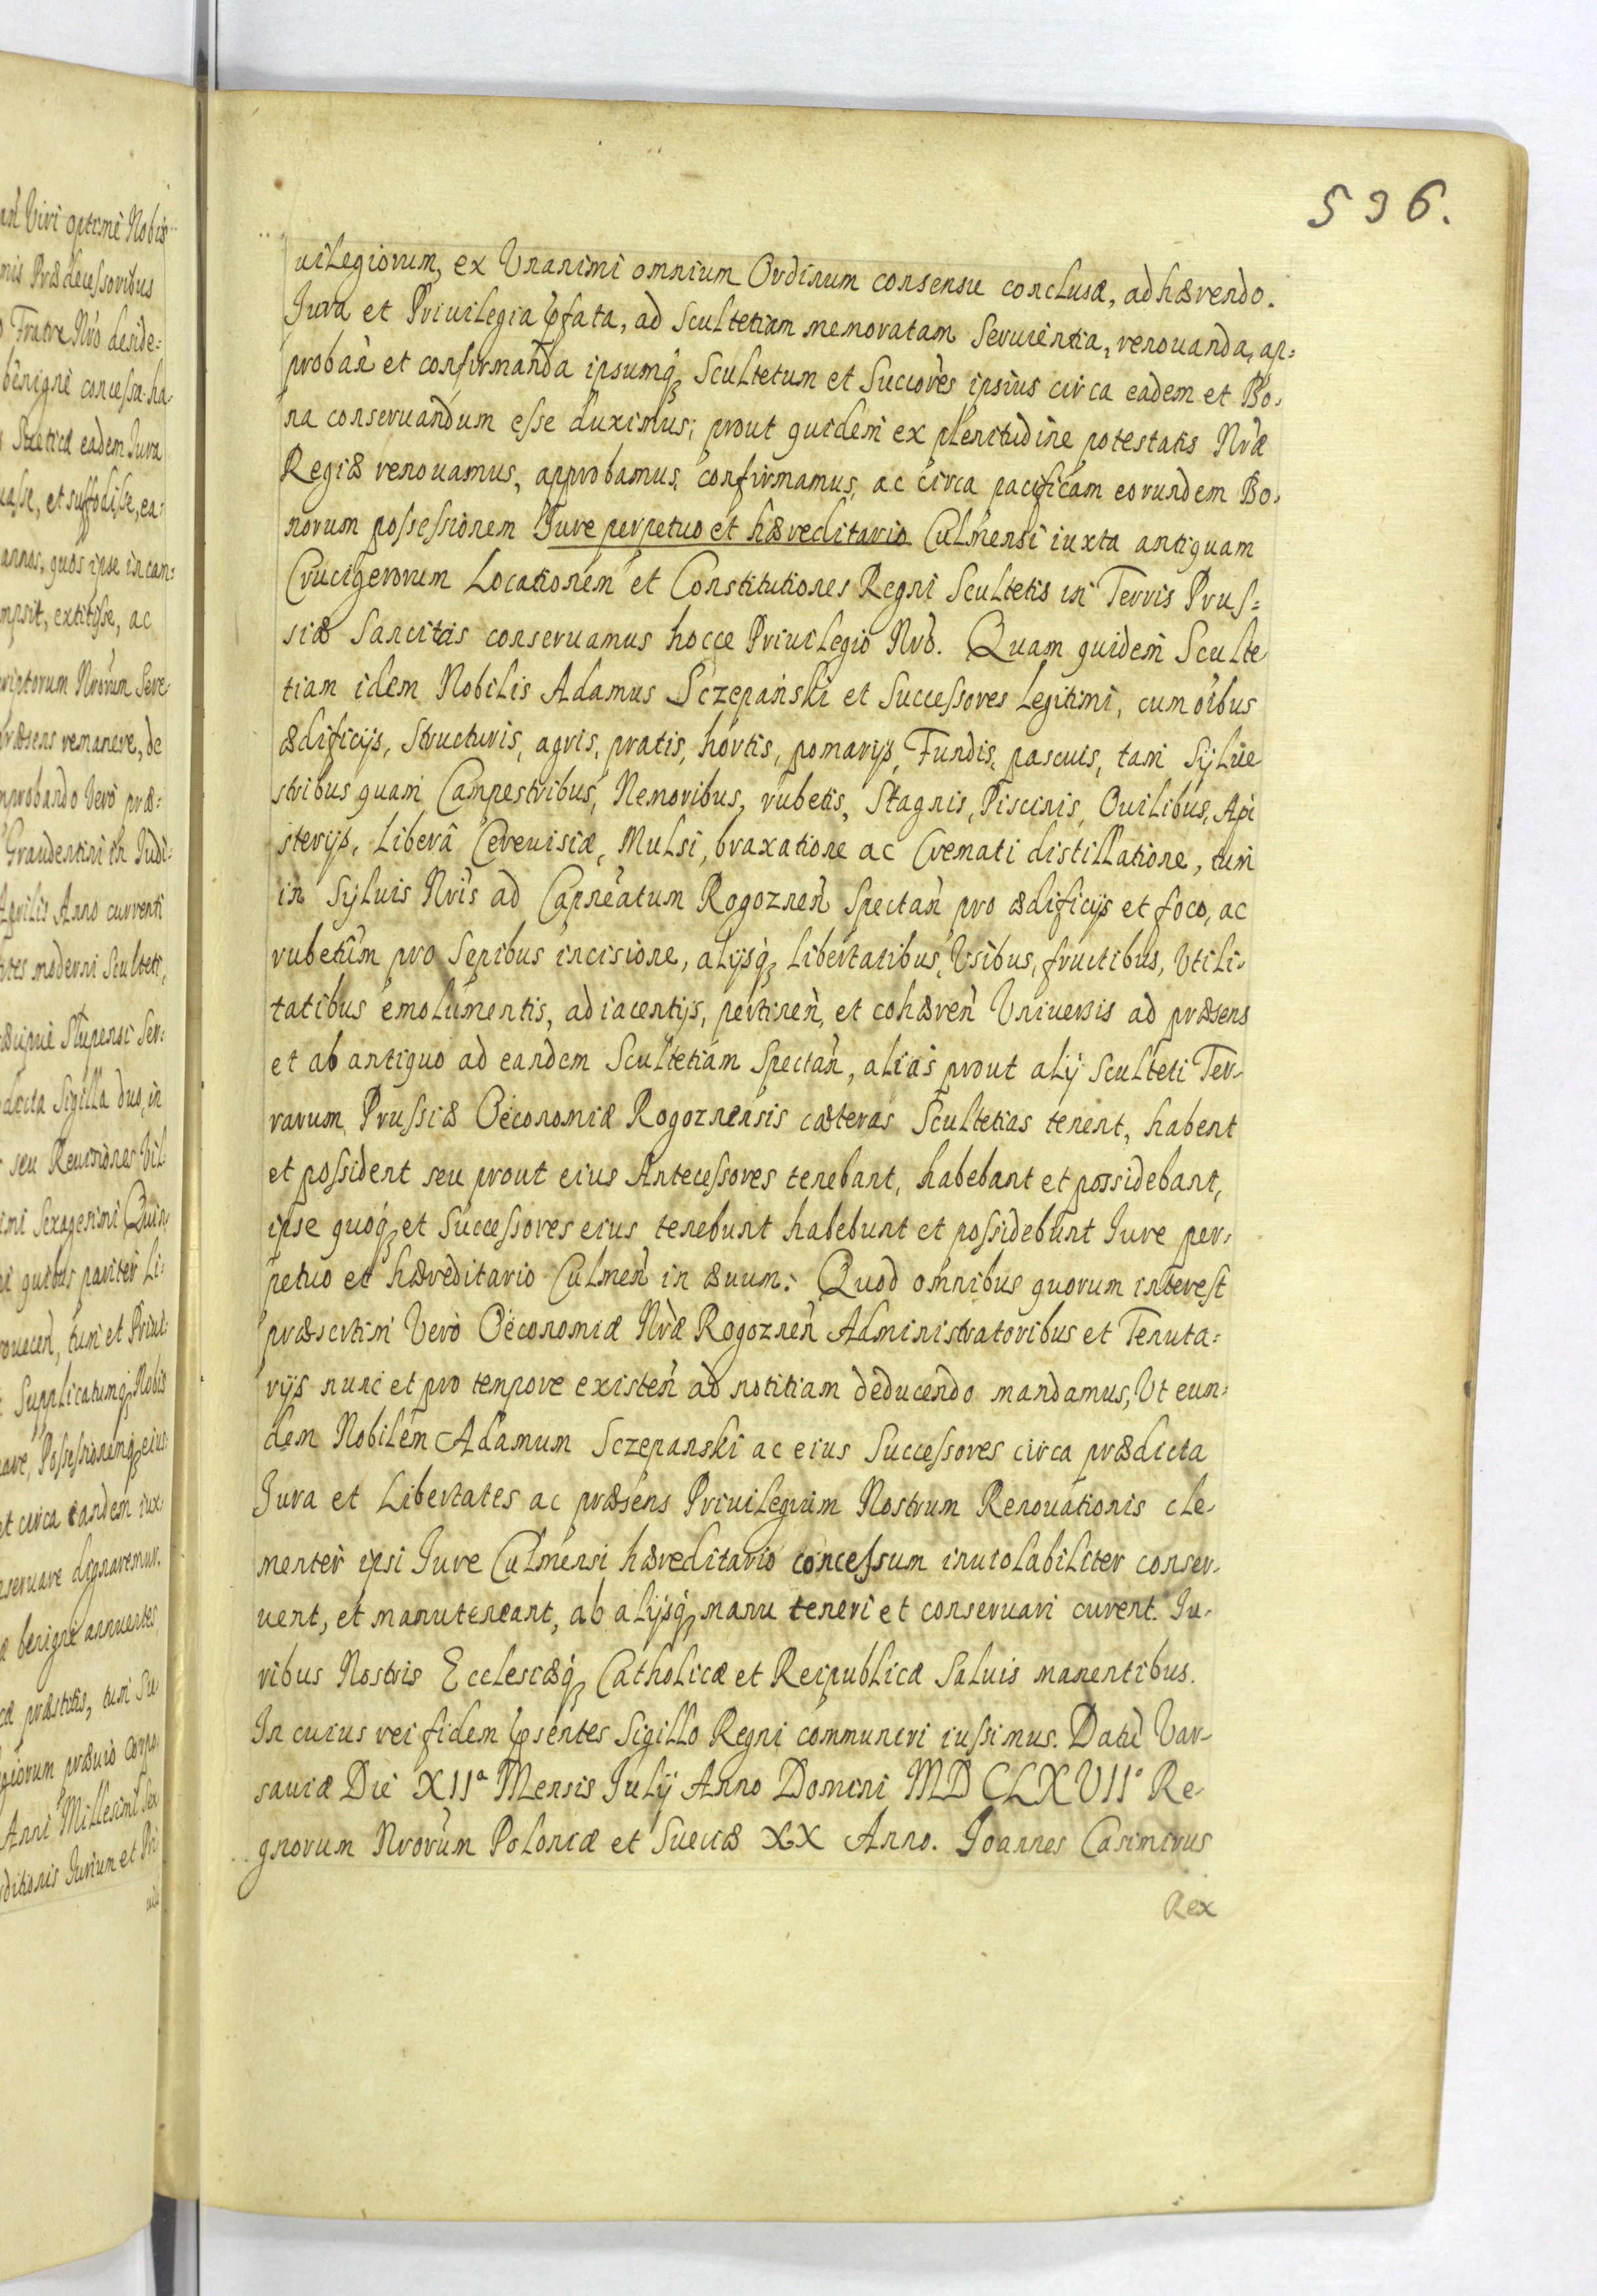 536.
uilegiorum, ex Unanimi omnium Ordinum consensu conclusæ, adhærendo.
Iura et Priuilegia p̱fata, ad Scultetiam memoratam Seruientia, renouanda, ap=
proban̄ et confirmanda ipsumq́ꝫ Scultetum et Succōres ipsius circa eadem et Bo-
na conseruandum esse duximus; prout quidem ex plenitudine potestatis Nr̄æ
Regiæ renouamus, approbamus, confirmamus, ac circa pacificam eorundem Bo-
norum possessionem Iure perpetuo et hæreditario Culmensi iuxta antiquam
Crucigerorum Locationem et Constitutiones Regni Scultetis in Terris Prus=
siæ Sancitas conseruamus hocce Priuilegio Nr̄o. Quam quidem Sculte
tiam idem Nobilis Adamus Sczepański et Successores legitimi, cum oībus
ædificijs, Structuris, agris, pratis, hortis, pomarijs, Fundis, pascuis, tam Sylue
stribus quam Campestribus, Nemoribus, rubetis, Stagnis, Piscinis, Ouilibus, Api
sterijs, Liberâ Cereuisiæ, Mulsi, braxatione ac Cremati distillatione, tum
in Syluis Nr̄is ad Capneatum Rogoznen̄ Spectan̄ pro ædificijs et foco, ac
rubetum pro Sepibus incisione, alijsq́ꝫ libertatibus, Usibus, fructibus, Utili-
tatibus emolumentis, adiacentijs, pertinen̄, et cohæren̄ Uniuersis ad præsens
et ab antiquo ad eandem Scultetiam Spectan̄, alias prout alij Sculteti Ter-
rarum Prussiæ Oeconomiæ Rogoznensis cæteras Scultetias tenent, habent
et possident seu prout eius Antecessores tenebant, habebant et possidebant,
ipse quoq́ꝫ et Successores eius tenebunt habebunt et possidebunt Iure per-
petuo et hæreditario Culmen̄ in æuum. Quod omnibus quorum interest
præsertim Vero Oeconomiæ Nr̄æ Rogoznen̄ Administratoribus et Tenuta=
rijs nunc et pro tempore existen̄ ad notitiam deducendo mandamus, Ut eun-
dem Nobilem Adamum Sczepanski ac eius Successores circa prædicta
Iura et Libertates ac præsens Priuilegium Nostrum Renouationis cle-
menter ipsi Iure Culmensi hæreditario concessum inuiolabiliter conser-
uent, et manuteneant, ab alijsq́ꝫ manu teneri et conseruari curent. Iu-
ribus Nostris Ecclesiæq́ꝫ Catholicæ et Reipublicæ Saluis manentibus.
In cuius rei fidem p̱sentes Sigillo Regni communiri iussimus. Datū Var-
sauiæ Die XIIᵃ Mensis Iulij Anno Domini MDCLXVII° Re-
gnorum Nr̄orum Poloniæ et Sueciæ XX Anno. Ioannes Casimirus
Rex